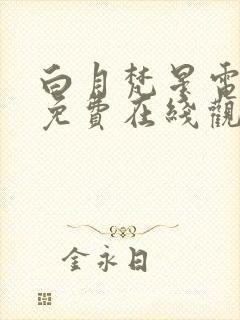 白月梵星電
免費在綫觀
金永日